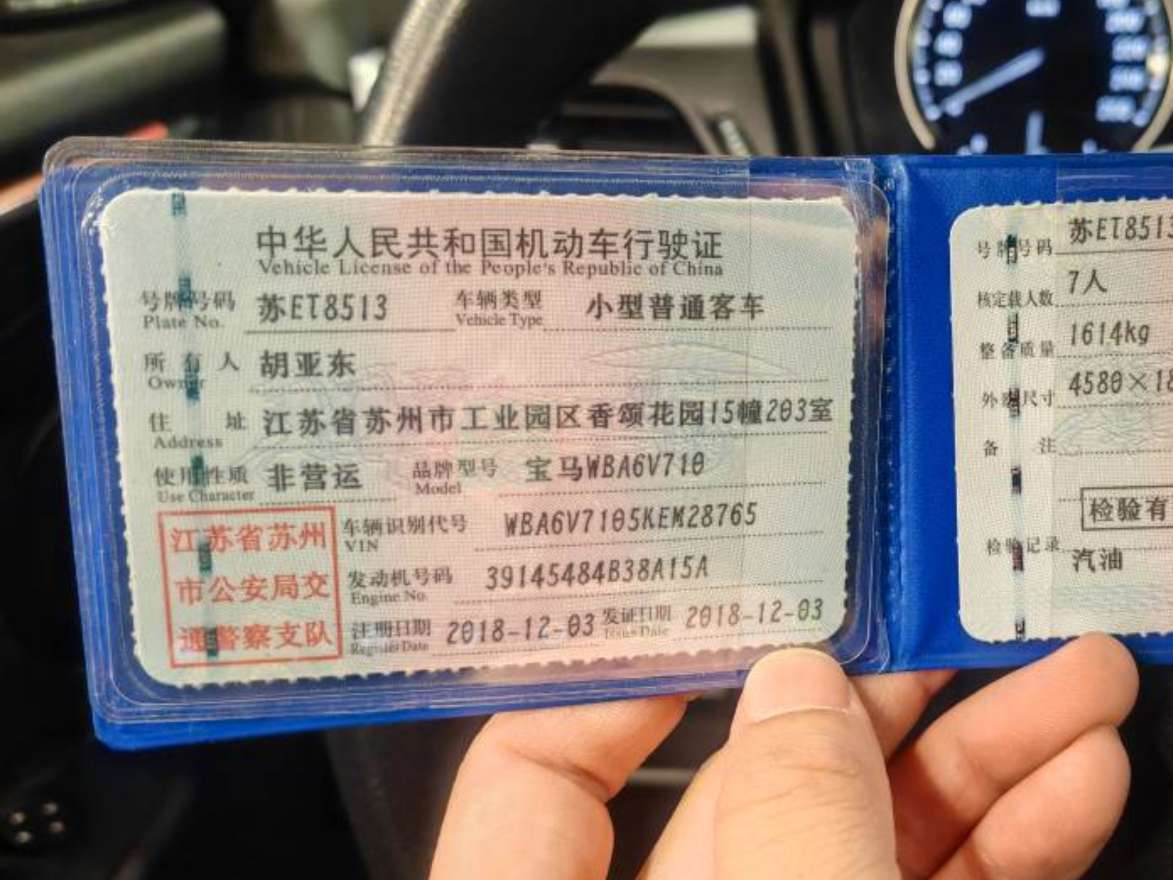 中华人民共和国机动车行驶证
Vehicle License of the People's Republic of China
号牌号码 苏ET8513 车辆类型 小型普通客车
Plate No. Vehicle Type
所有人 胡亚东
Owner
住址 江苏省苏州市工业园区香颂花园15幢203室
Address
使用性质 非营运 品牌型号 宝马WBA6V710
Use Character Model
江苏省苏州
市公安局交
通警察支队
车辆识别代号 WBA6V7105KEM28765
VIN
发动机号码 39145484B38A15A
Engine No.
注册日期 2018-12-03 发证日期 2018-12-03
Register Date Issue Date
号牌号码 苏ET8513
核定载人数 7人
整备质量 1614kg
外廓尺寸 4580×18
备注
检验有
检验记录 汽油